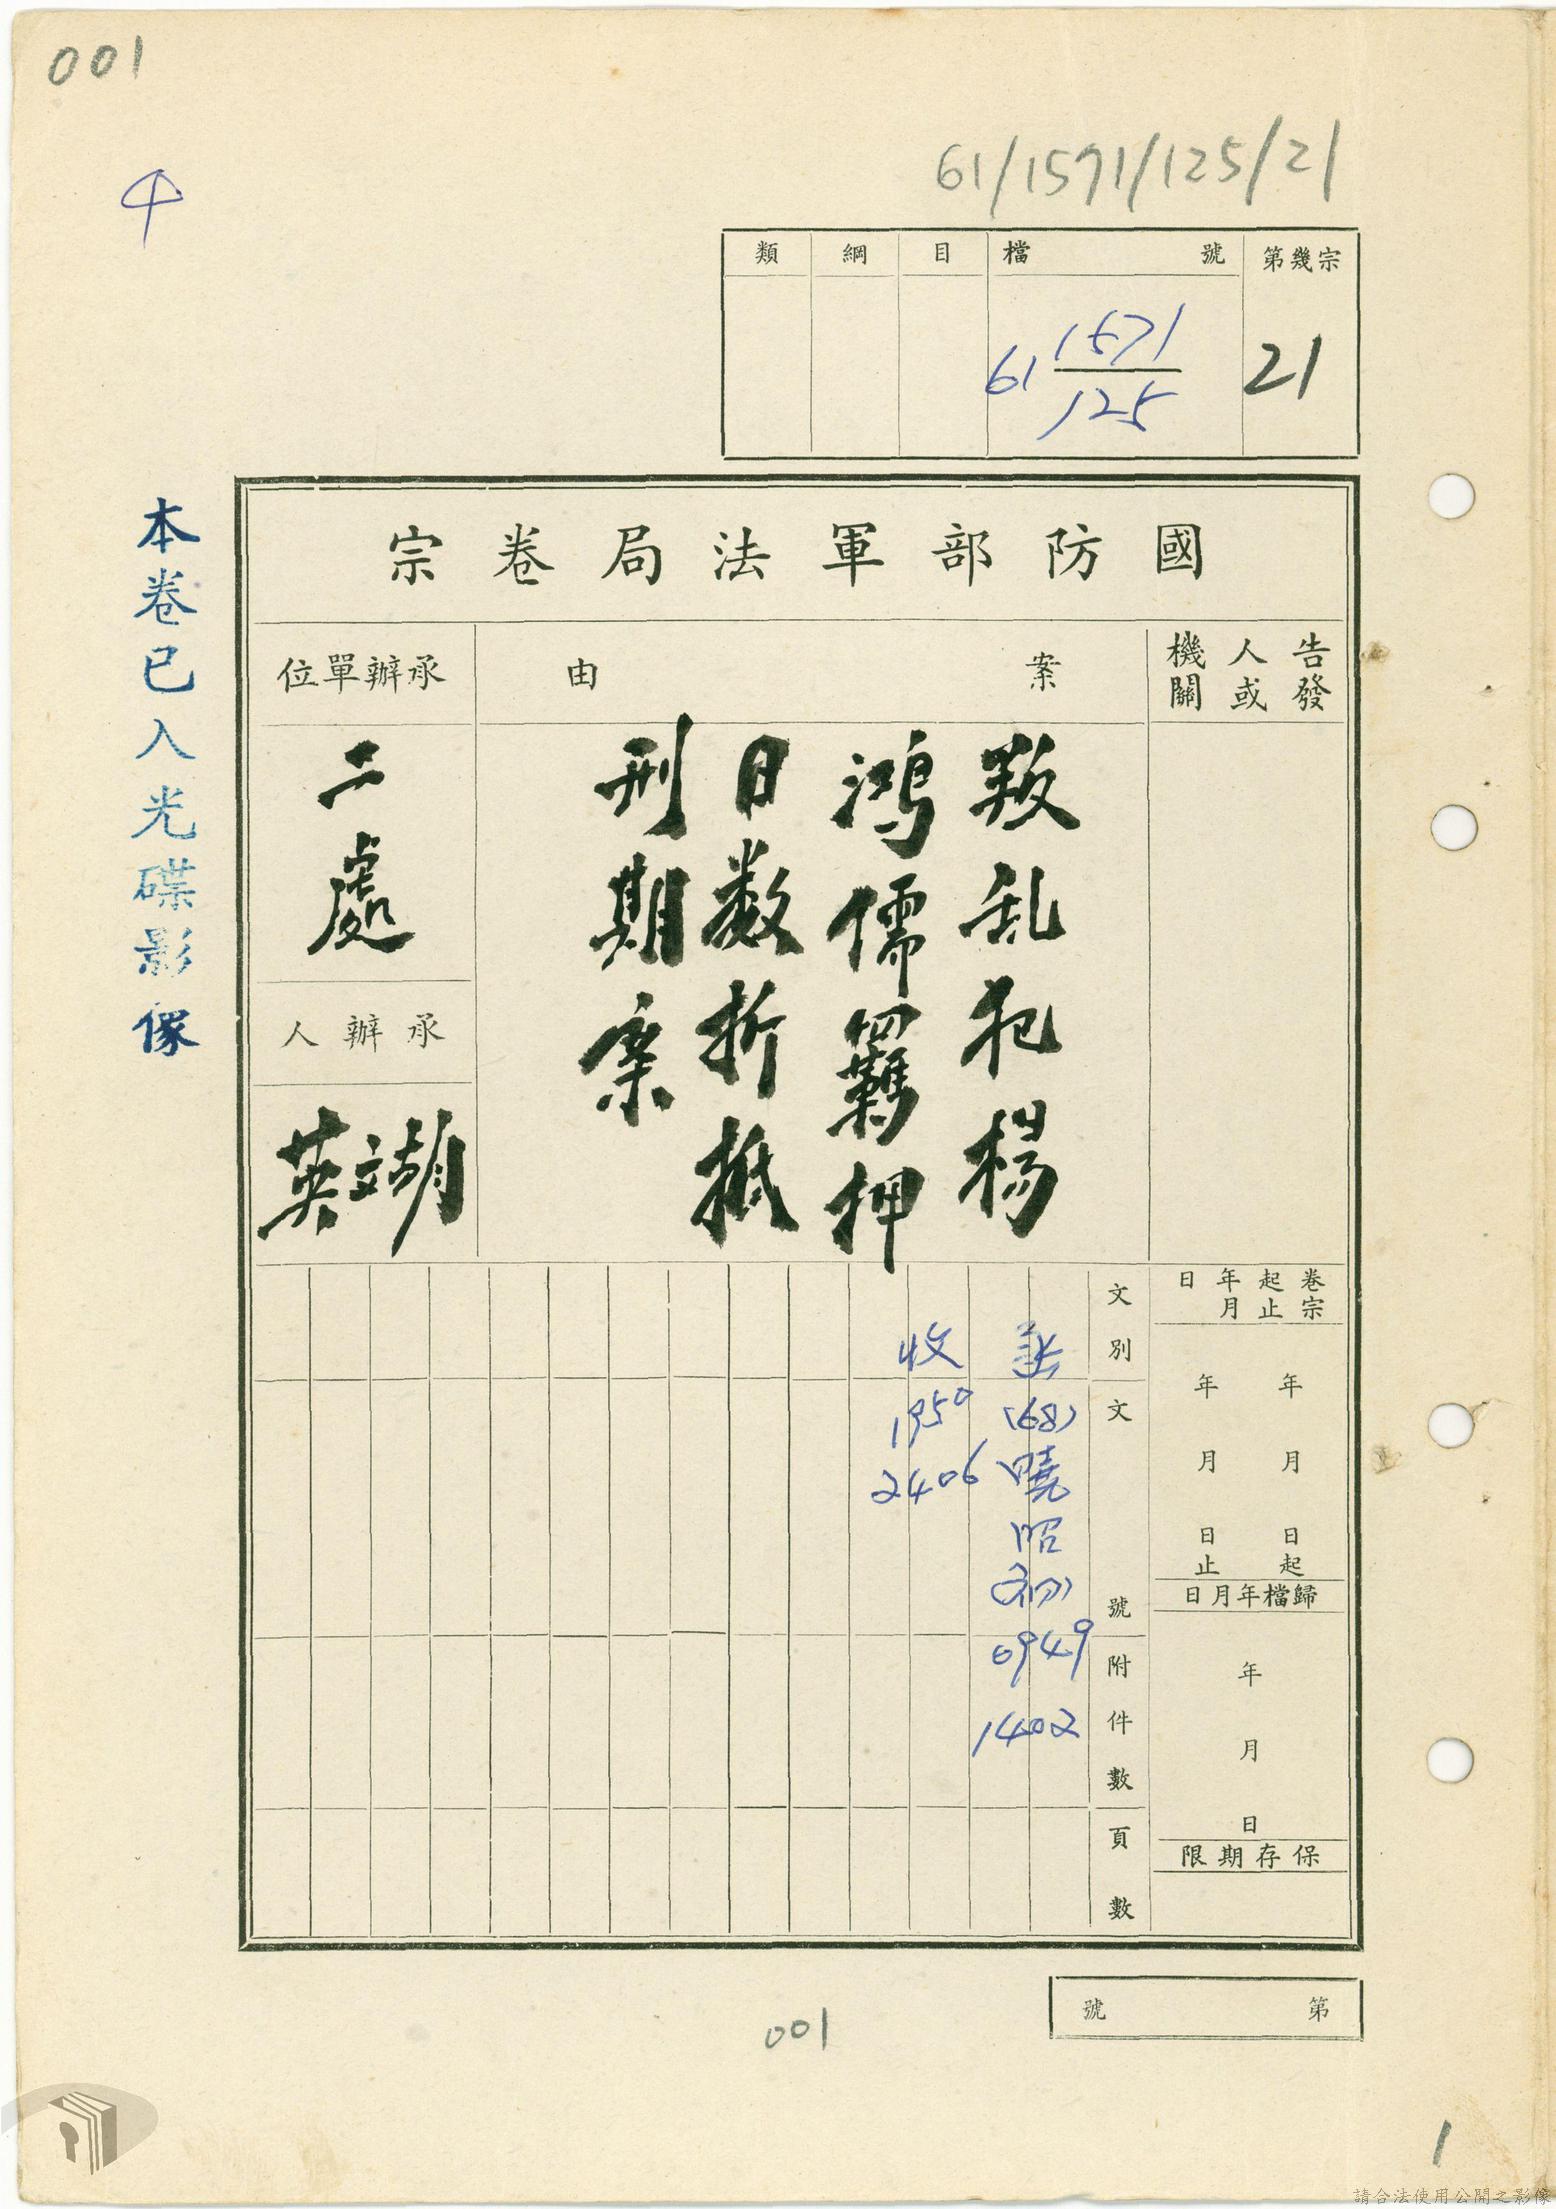 001
61/1571/125/21
類 綱 目 檔號 第幾宗
61 1571
125
21
本卷已入光碟影像
國防部軍法局卷宗
告發人或機關
案由
叛乱犯楊
鴻儒羈押
日数折抵
刑期案
承辦單位
二處
承辦人
胡文英
卷宗起止年月日
年月日起
年月日止
歸檔年月日
年月日
保存期限
文別
文號
附件數
頁數
(68)
曉
昭
0949
1402
收
1350
2406
第號
001
1
請合法使用公開之影像